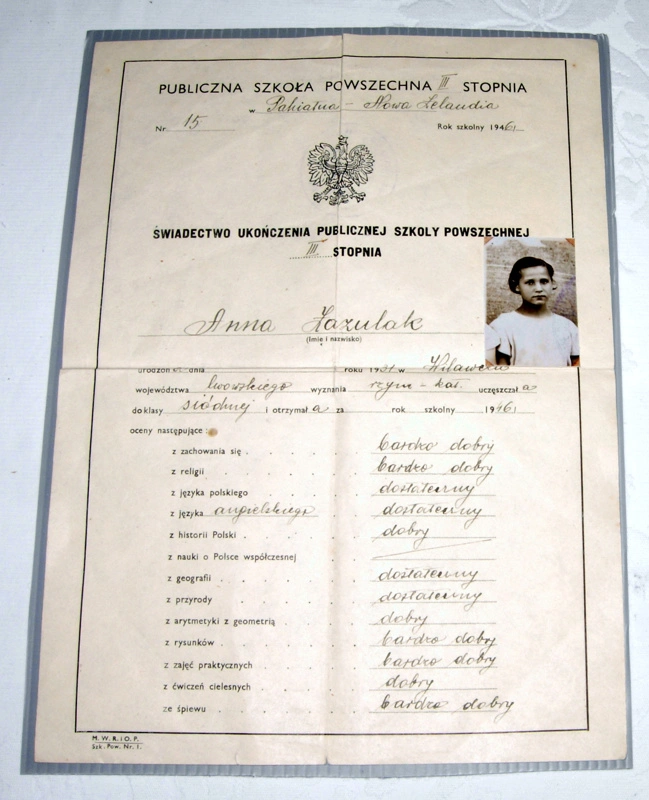 PUBLICZNA SZKOŁA POWSZECHNA III STOPNIA
w Pahiatua - Nowa Zelandia
Nr. 15 Rok szkolny 1946
ŚWIADECTWO UKOŃCZENIA PUBLICZNEJ SZKOŁY POWSZECHNEJ
III STOPNIA
Anna Zazulak
(Imię i nazwisko)
dnia roku 1931 w
województwa lwowskiego wyznania rzym-kat. uczęszczała
do klasy siódmej i otrzymała za rok szkolny 1946
oceny następujące:
z zachowania się bardzo dobry
z religii bardzo dobry
z języka polskiego dostateczny
z języka angielskiego dostateczny
z historii Polski dobry
z nauki o Polsce współczesnej
z geografii dostateczny
z przyrody dostateczny
z arytmetyki z geometrią dobry
z rysunków bardzo dobry
z zajęć praktycznych bardzo dobry
z ćwiczeń cielesnych dobry
ze śpiewu bardzo dobry
M. W. R. i O. P.
Szk. Pow. Nr. 1.